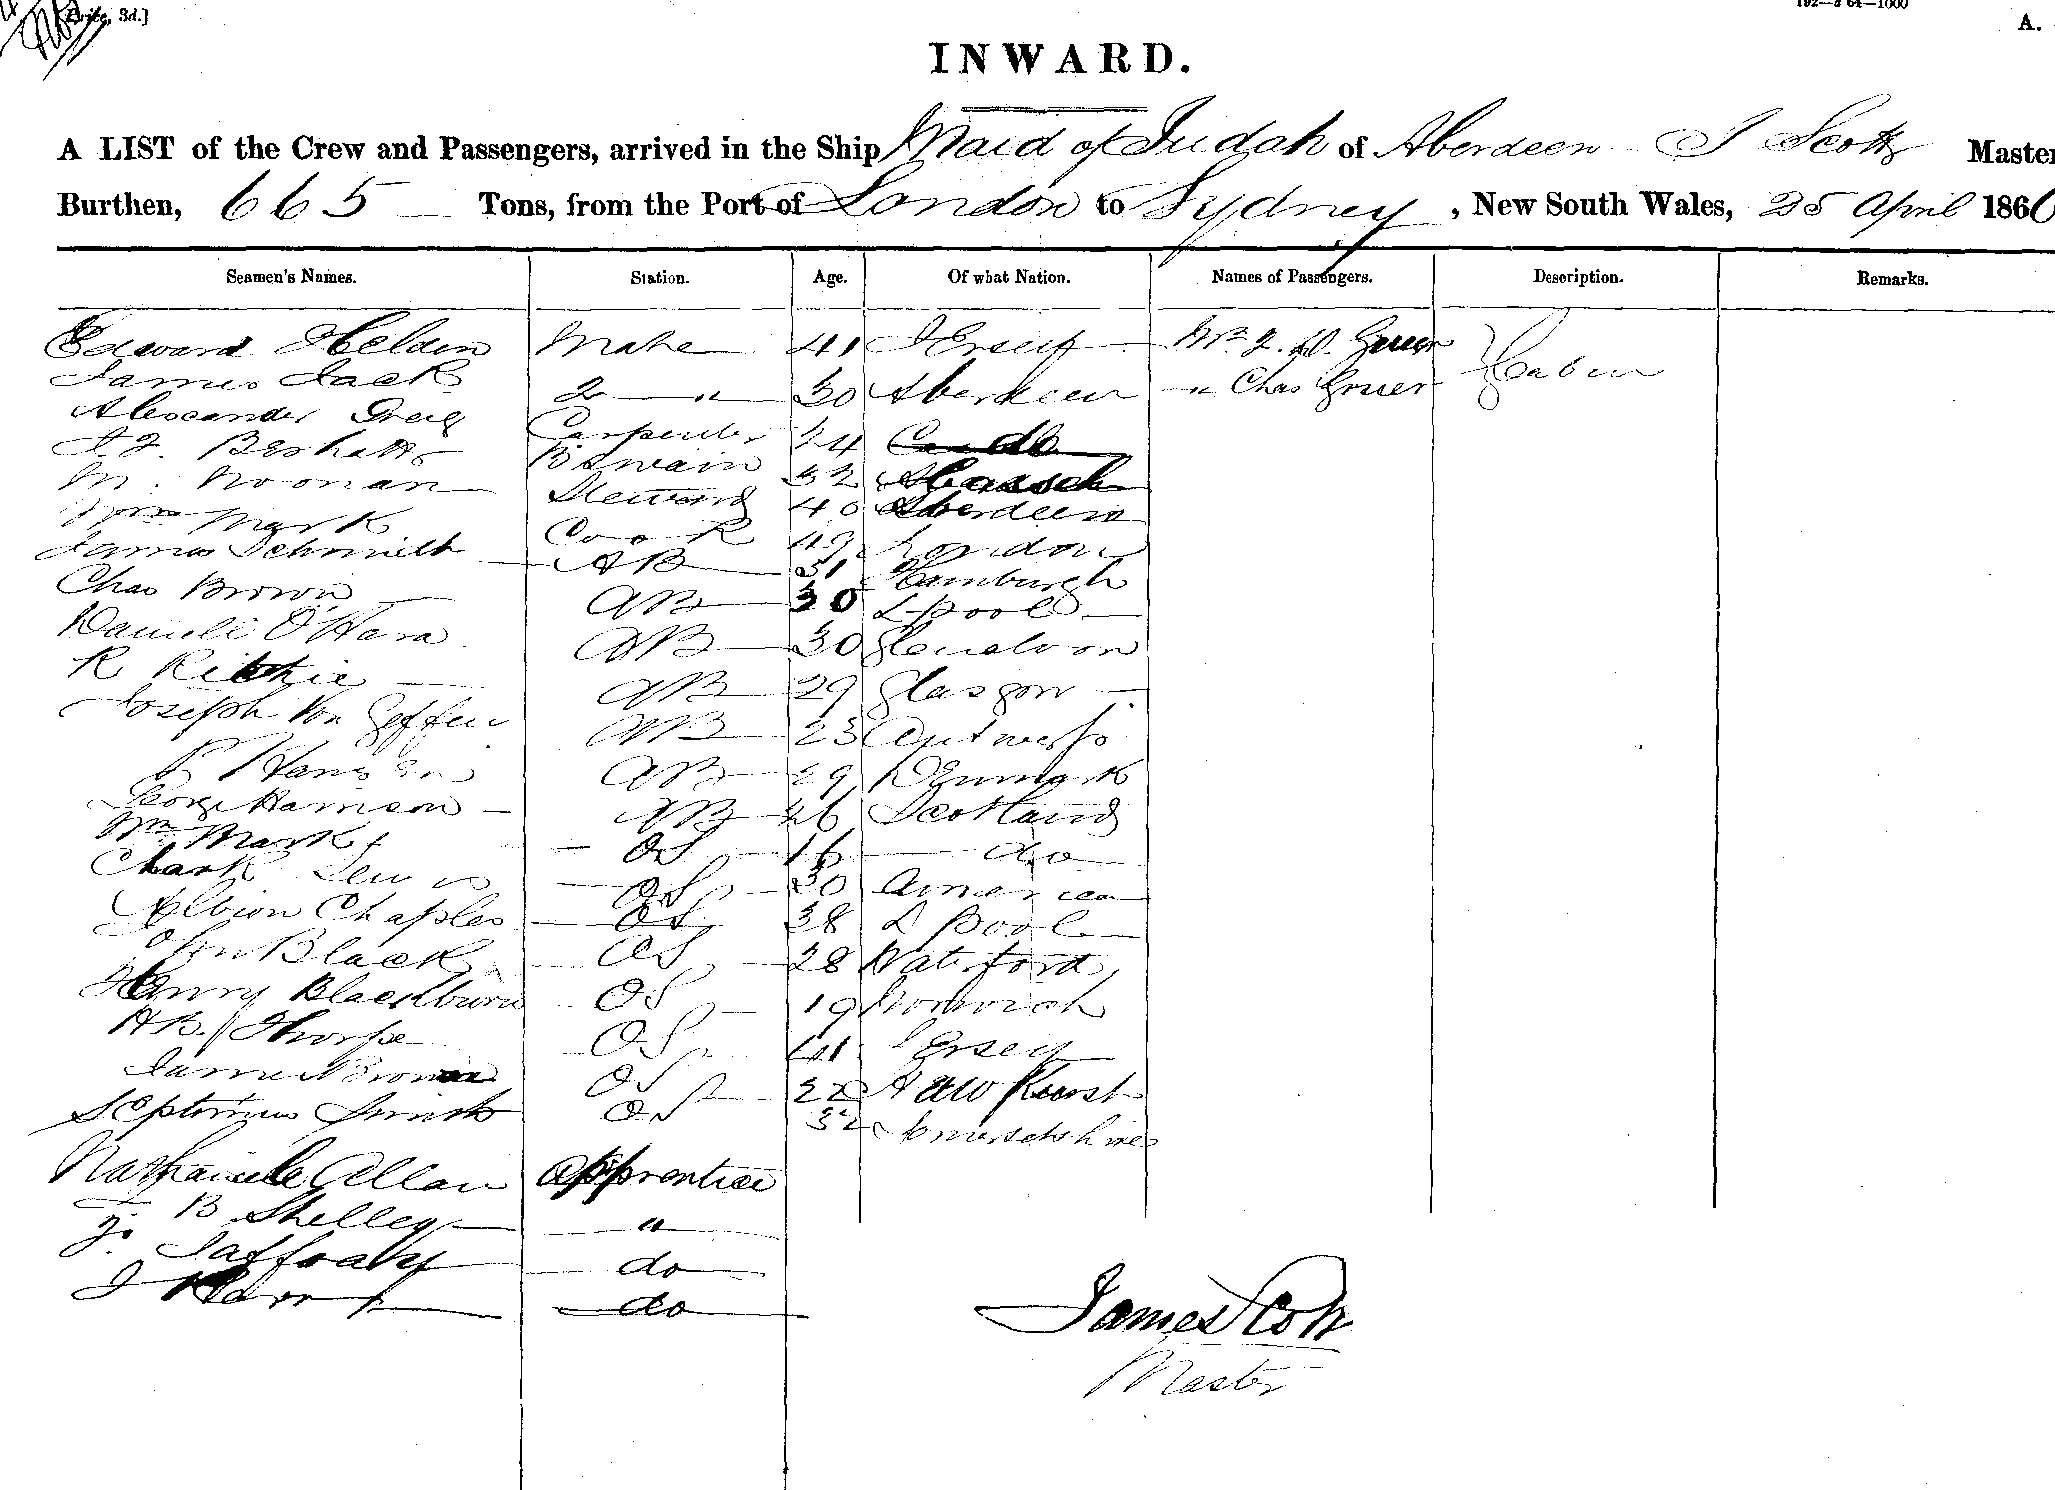 Price, 3d.]
192—a 64—1000
A.
INWARD.
A LIST of the Crew and Passengers, arrived in the Ship Maid of Judah of Aberdeen J Scott Master
Burthen, 665 Tons, from the Port of London to Sydney, New South Wales, 25 April 186
Seamen's Names. Station. Age. Of what Nation. Names of Passengers. Description. Remarks.
Edward Helden Mate 41 Jersey Mr. J. D. Gruer Cabin
James Jack 2 " 30 Aberdeen " Chas Gruer
Alexander Greig Carpenter 24 do
Boswain 32
M. Noonan Steward 40 Aberdeen
Wm Mark Cook 49 London
James Schmidt AB 31 Hamburgh
Chas Brown AB 30 L pool
Daniell O'Hara AB 30
R Ritchie AB 29 Glasgow
Joseph Von Geffen AB 23 Antwerp
P Hansen AB 29 Denmark
George Harrison AB 26 Scotland
Wm Mark OS 16 do
Chark Lewis OS 30 America
Albion Chaples OS 38 L Pool
Jhn Black OS 28 Waterford
Henry Blackburn OS 19 Norwich
HB Thorpe OS 41 Jersey
James Brown OS 22
Septimus Smith OS 32 Somersetshire
Nathaniele Allan Apprentice
B Shelley "
J. Jaffray do
J do
James Scott
Master